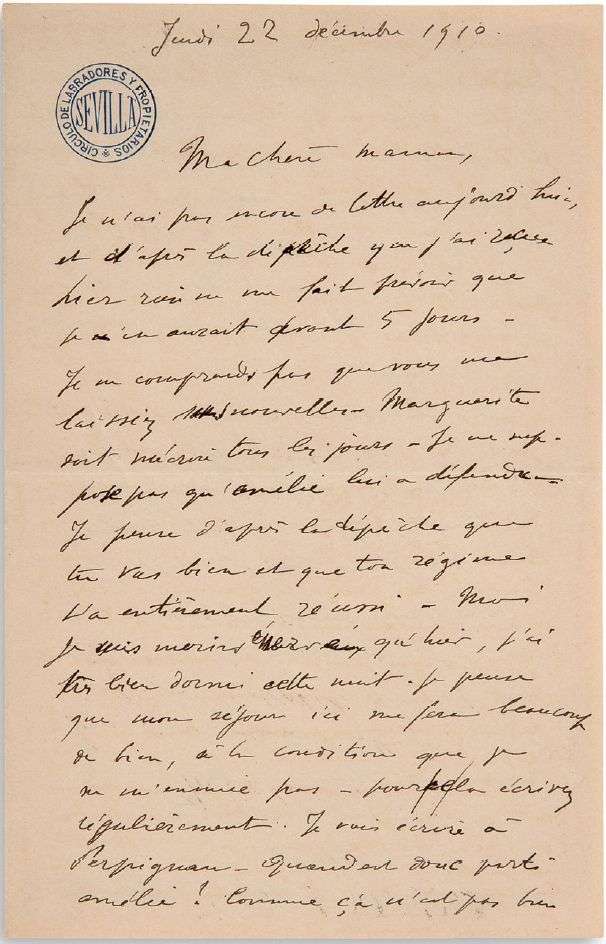 Jeudi 22 décembre 1910.
CIRCULO DE LABRADORES Y PROPIETARIOS
SEVILLA
Ma chère maman,
Je n'ai pas encore de lettre aujourd'hui,
et d'après la dépêche que j'ai reçue
hier rien ne me fait prévoir que
je n'en aurait avant 5 jours -
Je ne comprends pas que vous me
laissiez sans nouvelles - Marguerite
doit m'écrire tous les jours - Je ne sup-
pose pas qu'amélie lui a défendu -
Je pense d'après la dépêche que
tu vas bien et que ton régime
t'a entièrement réussi - Moi
Je suis moins nerveux qu'hier, j'ai
très bien dormi cette nuit. Je pense
que mon séjour ici me fera beaucoup
de bien, à la condition que je
ne m'ennuie pas - pour cela écrivez
régulièrement. Je vais écrire à
Perpignan - Quand est donc parti
amélie ? Comme ça n'est pas bien